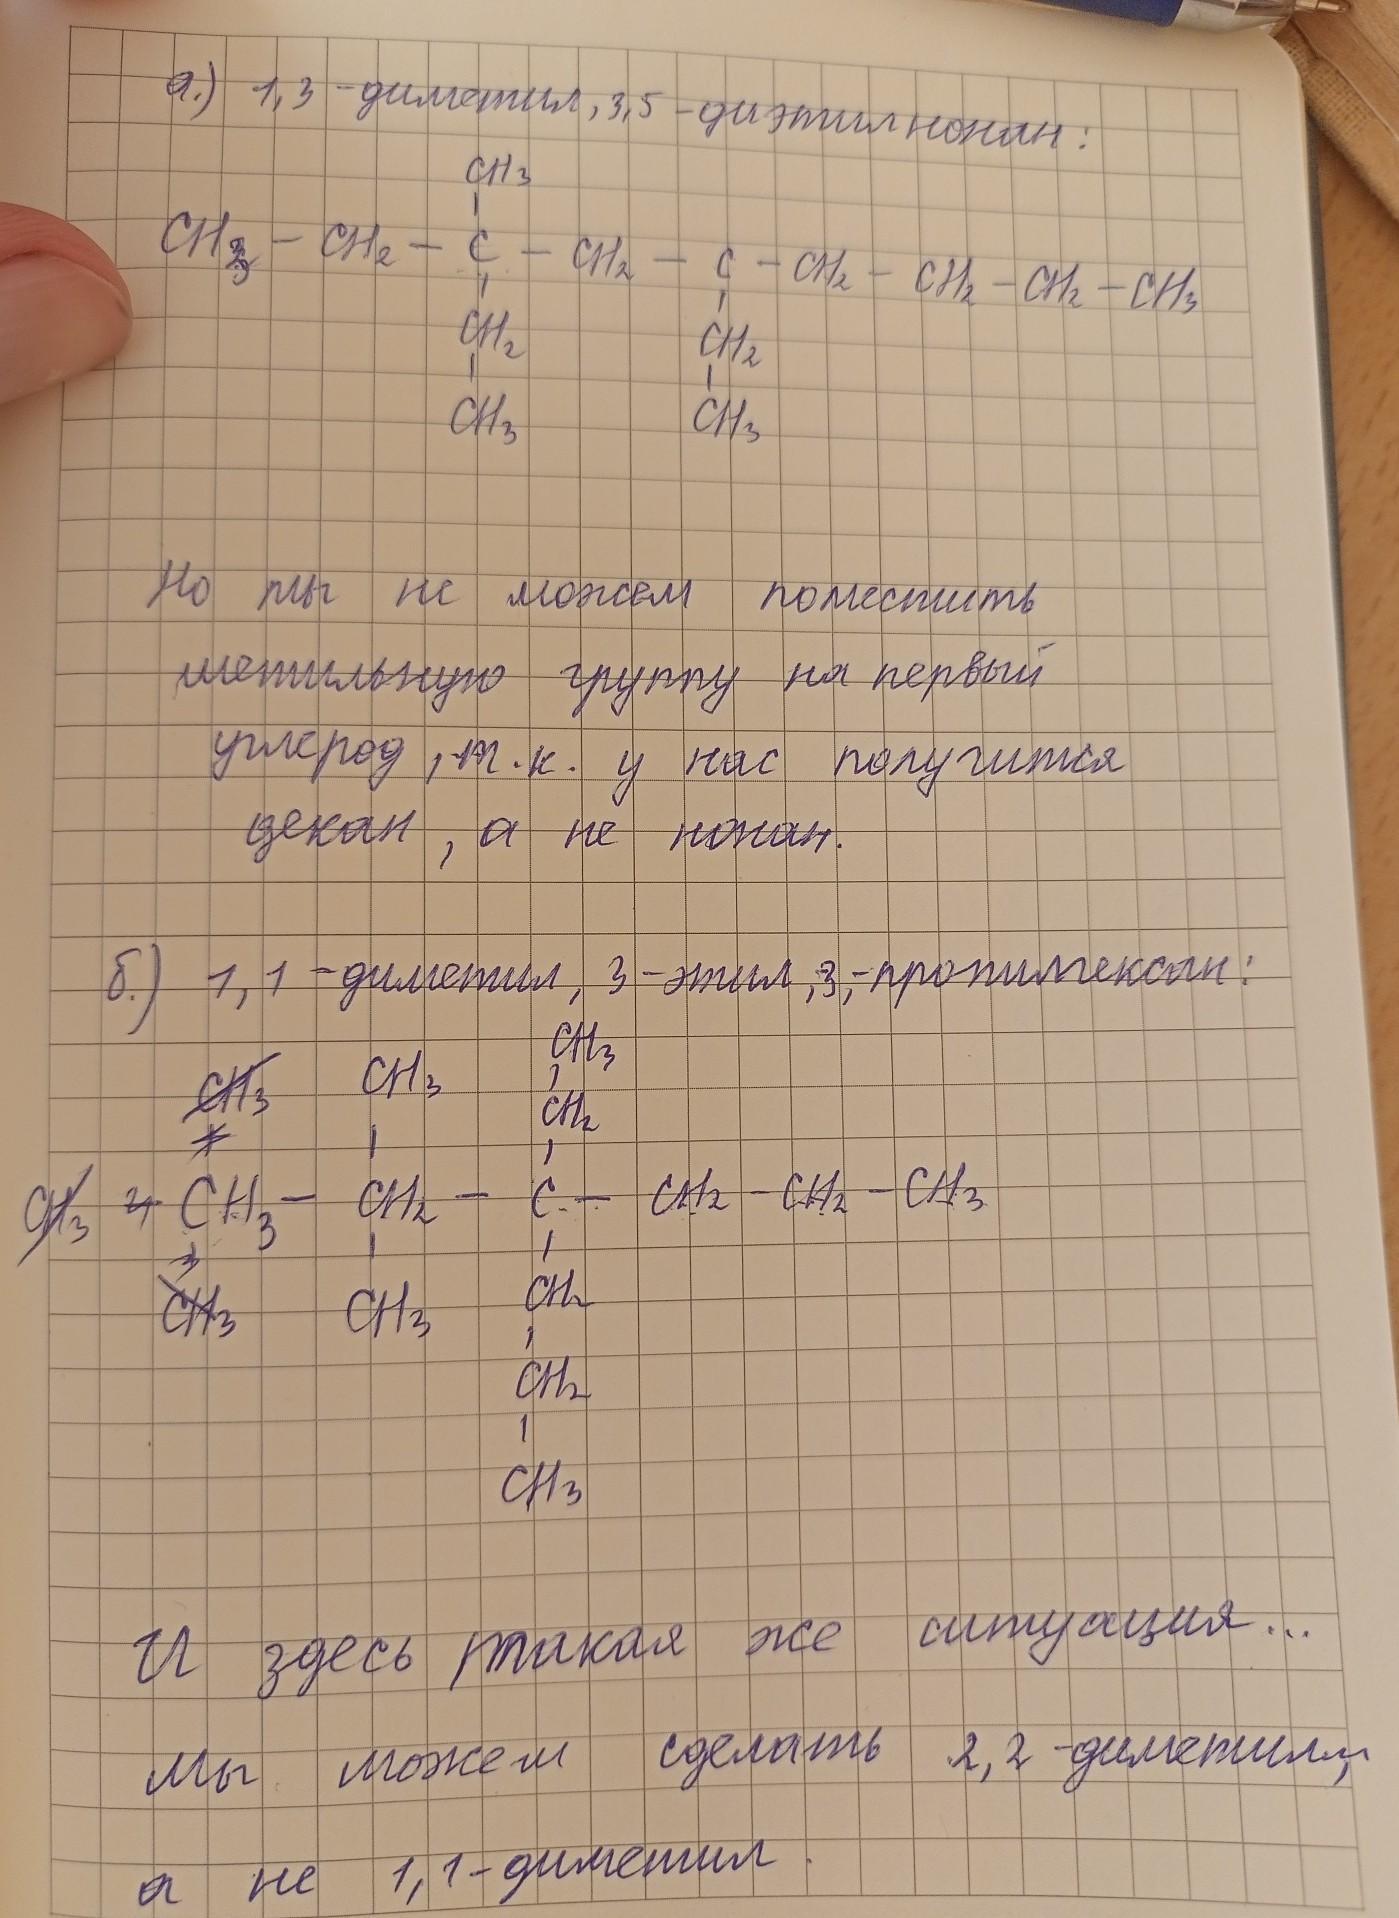 а.) 1,3-диметил,3,5-диэтилнонан:
CH3
CH3 - CH2 - C - CH2 - C - CH2 - CH2 - CH2 - CH3
CH2 CH2
CH3 CH3
Но мы не можем поместить
метильную группу на первый
углерод, т.к. у нас получится
декан, а не нонан.
б.) 1,1-диметил, 3-этил,3,-пропилгексан:
CH3
CH3 CH3
CH2
CH3 CH3 - CH2 - C - CH2 - CH2 - CH3
CH3 CH3 CH2
CH2
CH3
И здесь такая же ситуация...
Мы можем сделать 2,2-диметил,
а не 1,1-диметил.